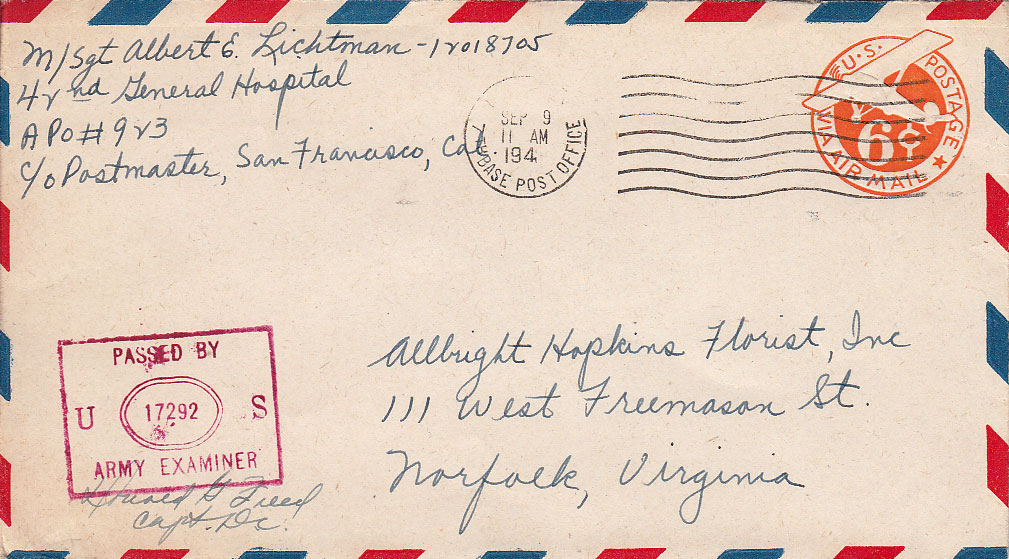 M/Sgt Albert E. Lichtman - 12018705
42nd General Hospital
APO # 923
c/o Postmaster, San Francisco, Cal
SEP 9
11 AM
194
BASE POST OFFICE
U.S. POSTAGE
6¢
VIA AIR MAIL
Allbright Hopkins Florist, Inc
111 West Freemason St.
Norfolk, Virginia
PASSED BY
U 17292 S
ARMY EXAMINER
Capt. DC